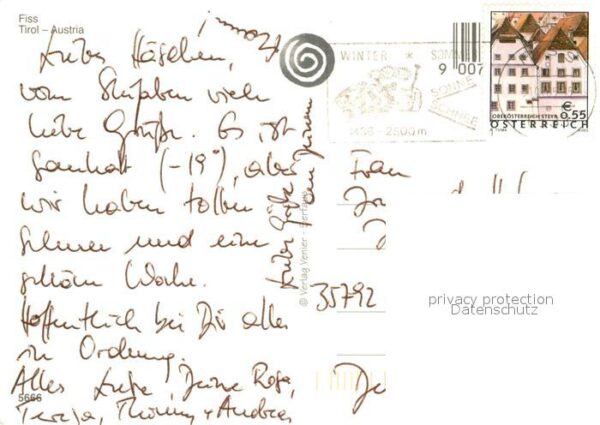 Fiss
Tirol – Austria
Liebes Häschen,
vom Skifahren viele
liebe Grüße. Es ist
saukalt (-19°), aber
wir haben tollen
Schnee und eine
schöne Woche.
Hoffentlich bei Dir alles
in Ordnung.
Alles Liebe, Deine Rosa,
Teresa, Thommy + Andrea
5666
Liebe Grüße
an
© Verlag Venier
WINTER * SOMMER
SONNE
1436 - 2500 m
9 007
OBERÖSTERREICH STEYR
€ 0,55
ÖSTERREICH
Frau
35792
privacy protection
Datenschutz